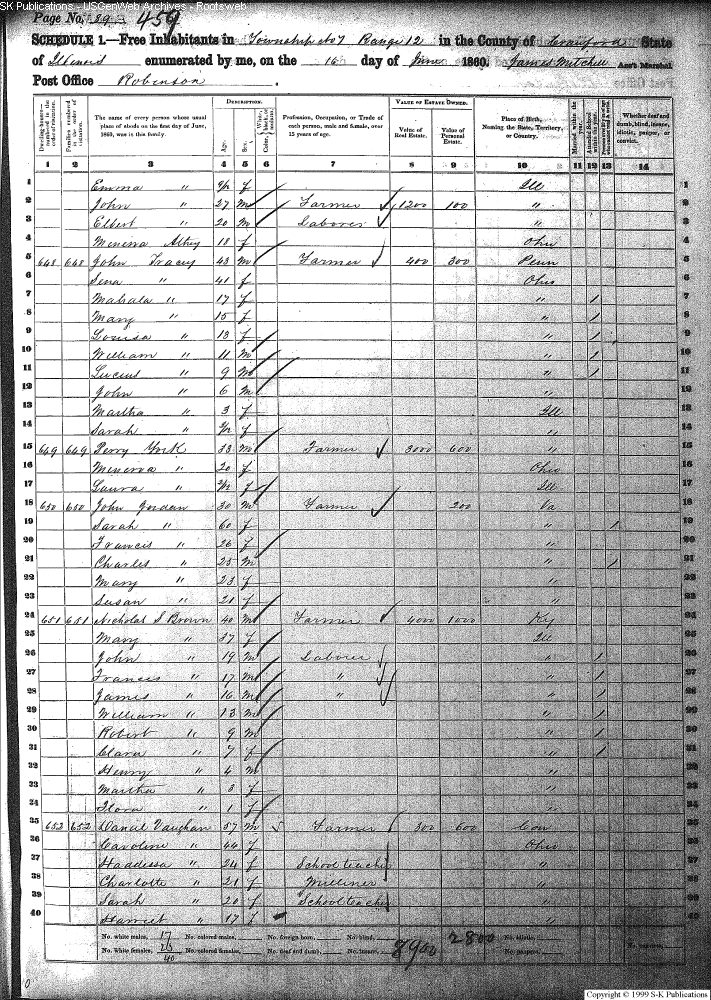 SK Publications - USGenWeb Archives - Rootsweb
Page No. 89 459
SCHEDULE 1.—Free Inhabitants in Township No 7 Range 12 in the County of Crawford State
of Illinois enumerated by me, on the 16 day of June 1860. James Mitchell Ass't Marshal
Post Office Robinson.
Dwelling-houses—numbered in the order of visitation. Families numbered in the order of visitation. The name of every person whose usual place of abode on the first day of June, 1860, was in this family. DESCRIPTION. Age. Sex. Color, White, black, or mulatto. Profession, Occupation, or Trade of each person, male and female, over 15 years of age. VALUE OF ESTATE OWNED. Value of Real Estate. Value of Personal Estate. Place of Birth, Naming the State, Territory, or Country. Married within the year. Attended School within the year. Whether deaf and dumb, blind, insane, idiotic, pauper, or convict.
1 2 3 4 5 6 7 8 9 10 11 12 13 14
1 Emma " f Ill 1
2 John " 27 m Farmer 1200 100 " 2
3 Elbert " 20 m Laborer " 3
4 Minerva Athey 18 f Ohio 4
5 648 648 John Tracey 43 m Farmer 400 300 Penn 5
6 Sena " 41 f Ohio 6
7 Mahala " 17 f " / 7
8 Mary " 15 f " / 8
9 Louisa " 13 f " / 9
10 William " 11 m " / 10
11 Lucius " 9 m " / 11
12 John " 6 m " 12
13 Martha " 3 f Ill 13
14 Sarah " f " 14
15 649 649 Perry York 33 m Farmer 3000 600 " 15
16 Minerva " 20 f Ohio 16
17 Laura " f Ill 17
18 650 650 John Jordan 30 m Farmer 200 Va 18
19 Sarah " 60 f " / 19
20 Francis " 26 f " 20
21 Charles " 25 m " / 21
22 Mary " 23 f " 22
23 Susan " 21 f " 23
24 651 651 Nicholas S Brown 40 m Farmer 4000 1000 Ky 24
25 Mary " 37 f Ill 25
26 John " 19 m Laborer " / 26
27 Francis " 17 m " " / 27
28 James " 16 m " " / 28
29 William " 13 m " / 29
30 Robert " 9 m " / 30
31 Clara " 7 f " / 31
32 Henry " 4 m " 32
33 Martha " 3 f " 33
34 Flora " 1 f " 34
35 652 652 Daniel Vaughan 57 m Farmer 800 600 Con 35
36 Caroline " 44 f Ohio 36
37 Haddessa " 24 f School teacher " 37
38 Charlotte " 21 f Milliner " 38
39 Sarah " 20 f School teacher 39
40 Harriet " 17 f 40
No. white males, 17 No. colored males, No. foreign born, No. blind, 8900 2800 No. idiotic,
No. white females, 23 No. colored females, No. deaf and dumb, No. insane, No. paupers, No. convicts,
40
Copyright © 1999 S-K Publications